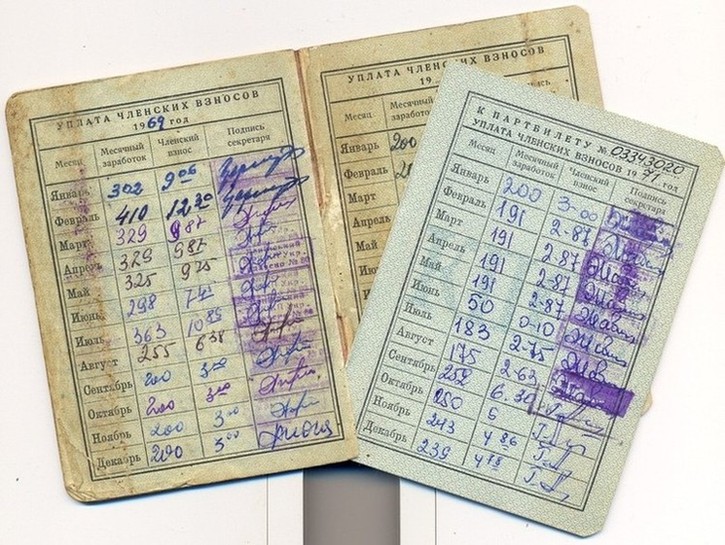 УПЛАТА ЧЛЕНСКИХ ВЗНОСОВ
1969 год
Месяц Месячный заработок Членский взнос Подпись секретаря
Январь 302 9 06
Февраль 410 12 30
Март 329 9 87
Апрель 329 9 87
Май 325 9 75
Июнь 298
Июль 363 10 89
Август 255 6 38
Сентябрь 200 3 00
Октябрь 200 3 00
Ноябрь 200 3 00
Декабрь 200 3 00
УПЛАТА ЧЛЕНСКИХ ВЗНОСОВ
19
Месяц Месячный
Январь 200
Февраль
Март
Апрель
Май
Июнь
К ПАРТБИЛЕТУ № 03343020
УПЛАТА ЧЛЕНСКИХ ВЗНОСОВ 1971 год
Месяц Месячный заработок Членский взнос Подпись секретаря
Январь 200 3-00
Февраль 191 2-87
Март 191 2-87
Апрель 191 2-87
Май 191 2-87
Июнь 50 0-10
Июль 183 2-75
Август 175 2-63
Сентябрь 252 6.30
Октябрь 250 6
Ноябрь 243 4 86
Декабрь 239 4 78